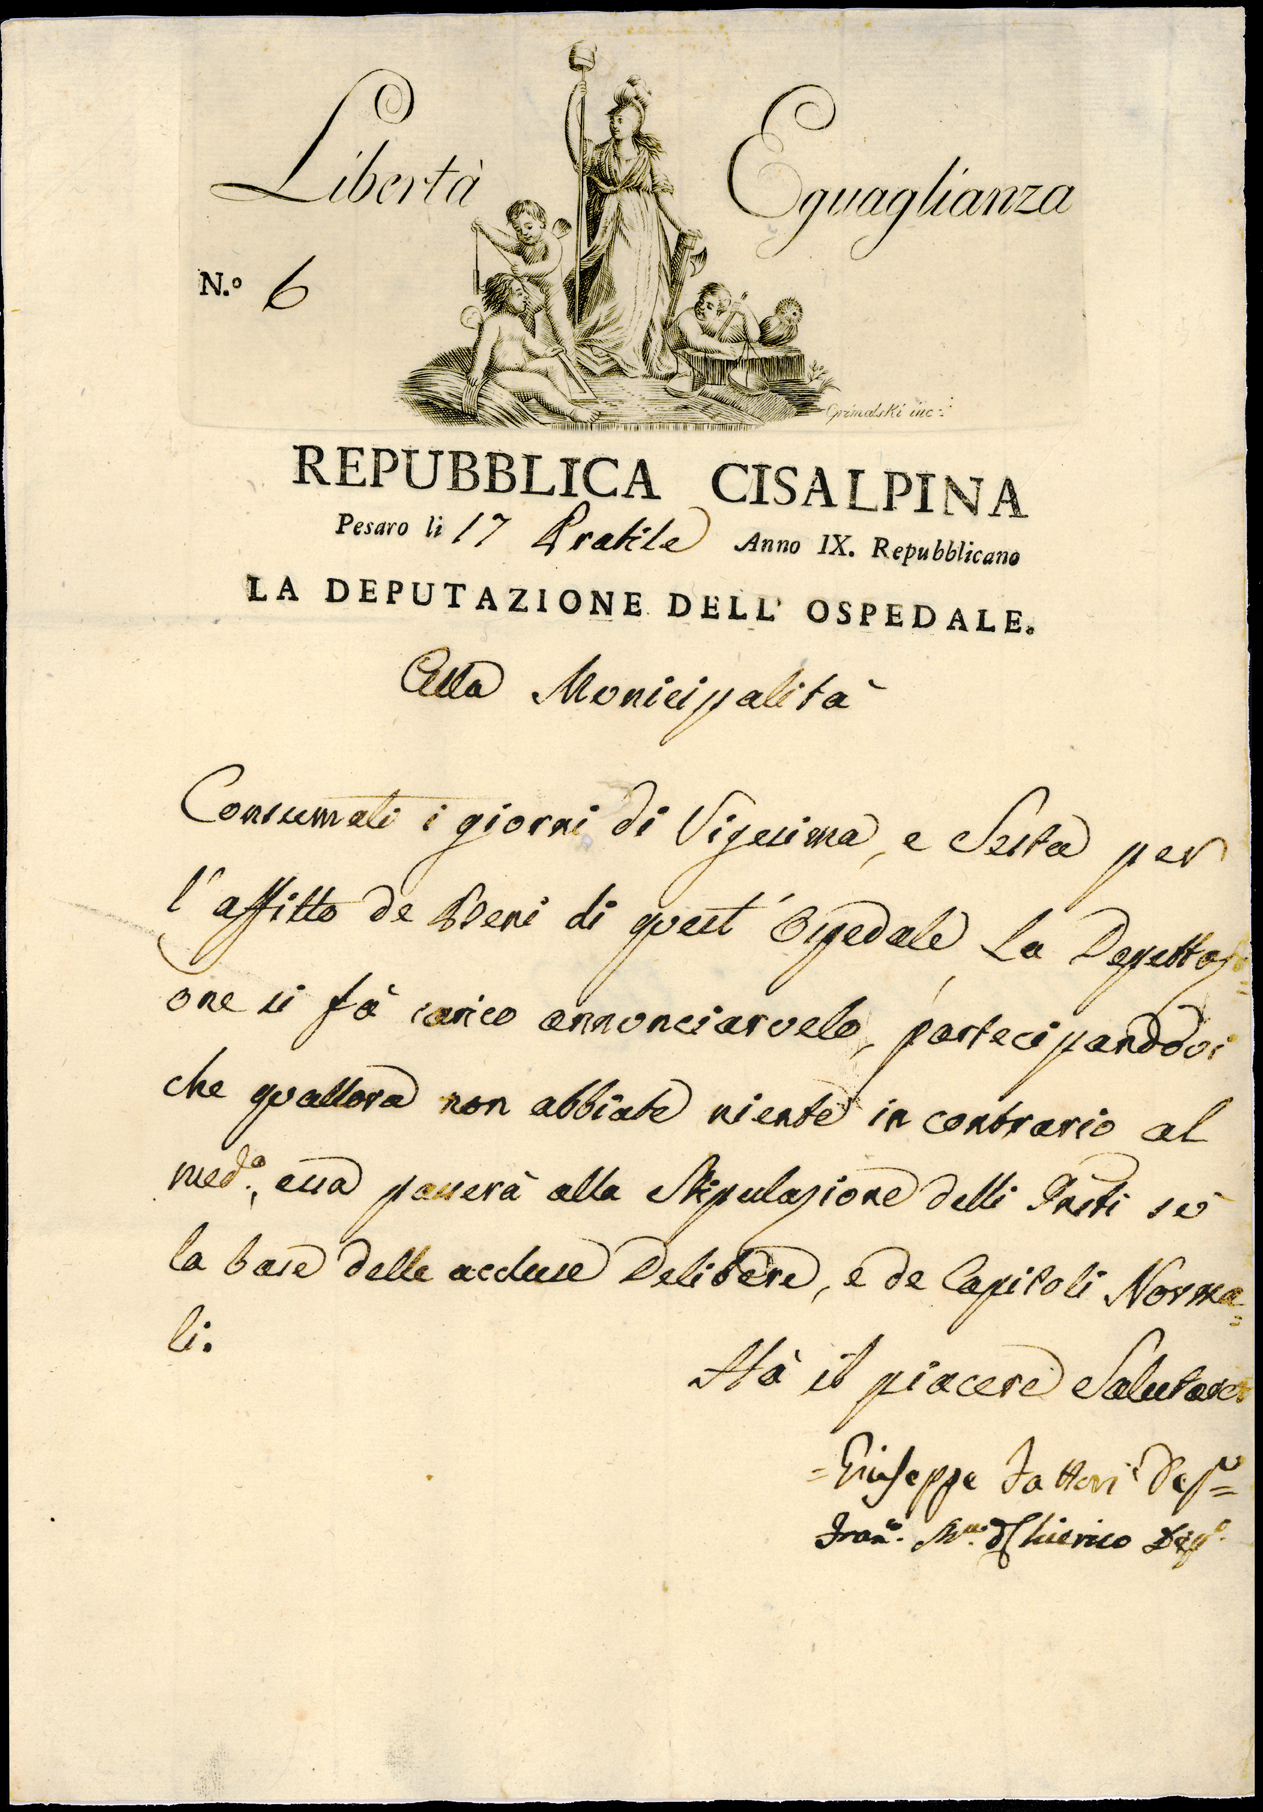 Libertà Eguaglianza
N.º 6
Grimalski inc:
REPUBBLICA CISALPINA
Pesaro li 17 Pratile Anno IX. Repubblicano
LA DEPUTAZIONE DELL' OSPEDALE.
Alla Municipalità
Consumati i giorni di Vigesima, e Sesta per
l'affitto de Beni di quest' Ospedale La Deputtazi=
one si fà carico annunciarvelo, partecipandovi
che quallora non abbiate niente in contrario al
med.º, essa passerà alla Stipulazione delli Insti sù
la base delle accluse Delibere, e de Capitoli Norma=
li.
Hà il piacere Salutarvi
=Giuseppe Fattori Dep.º=
Fran.º M.ª Chierico Dep.º